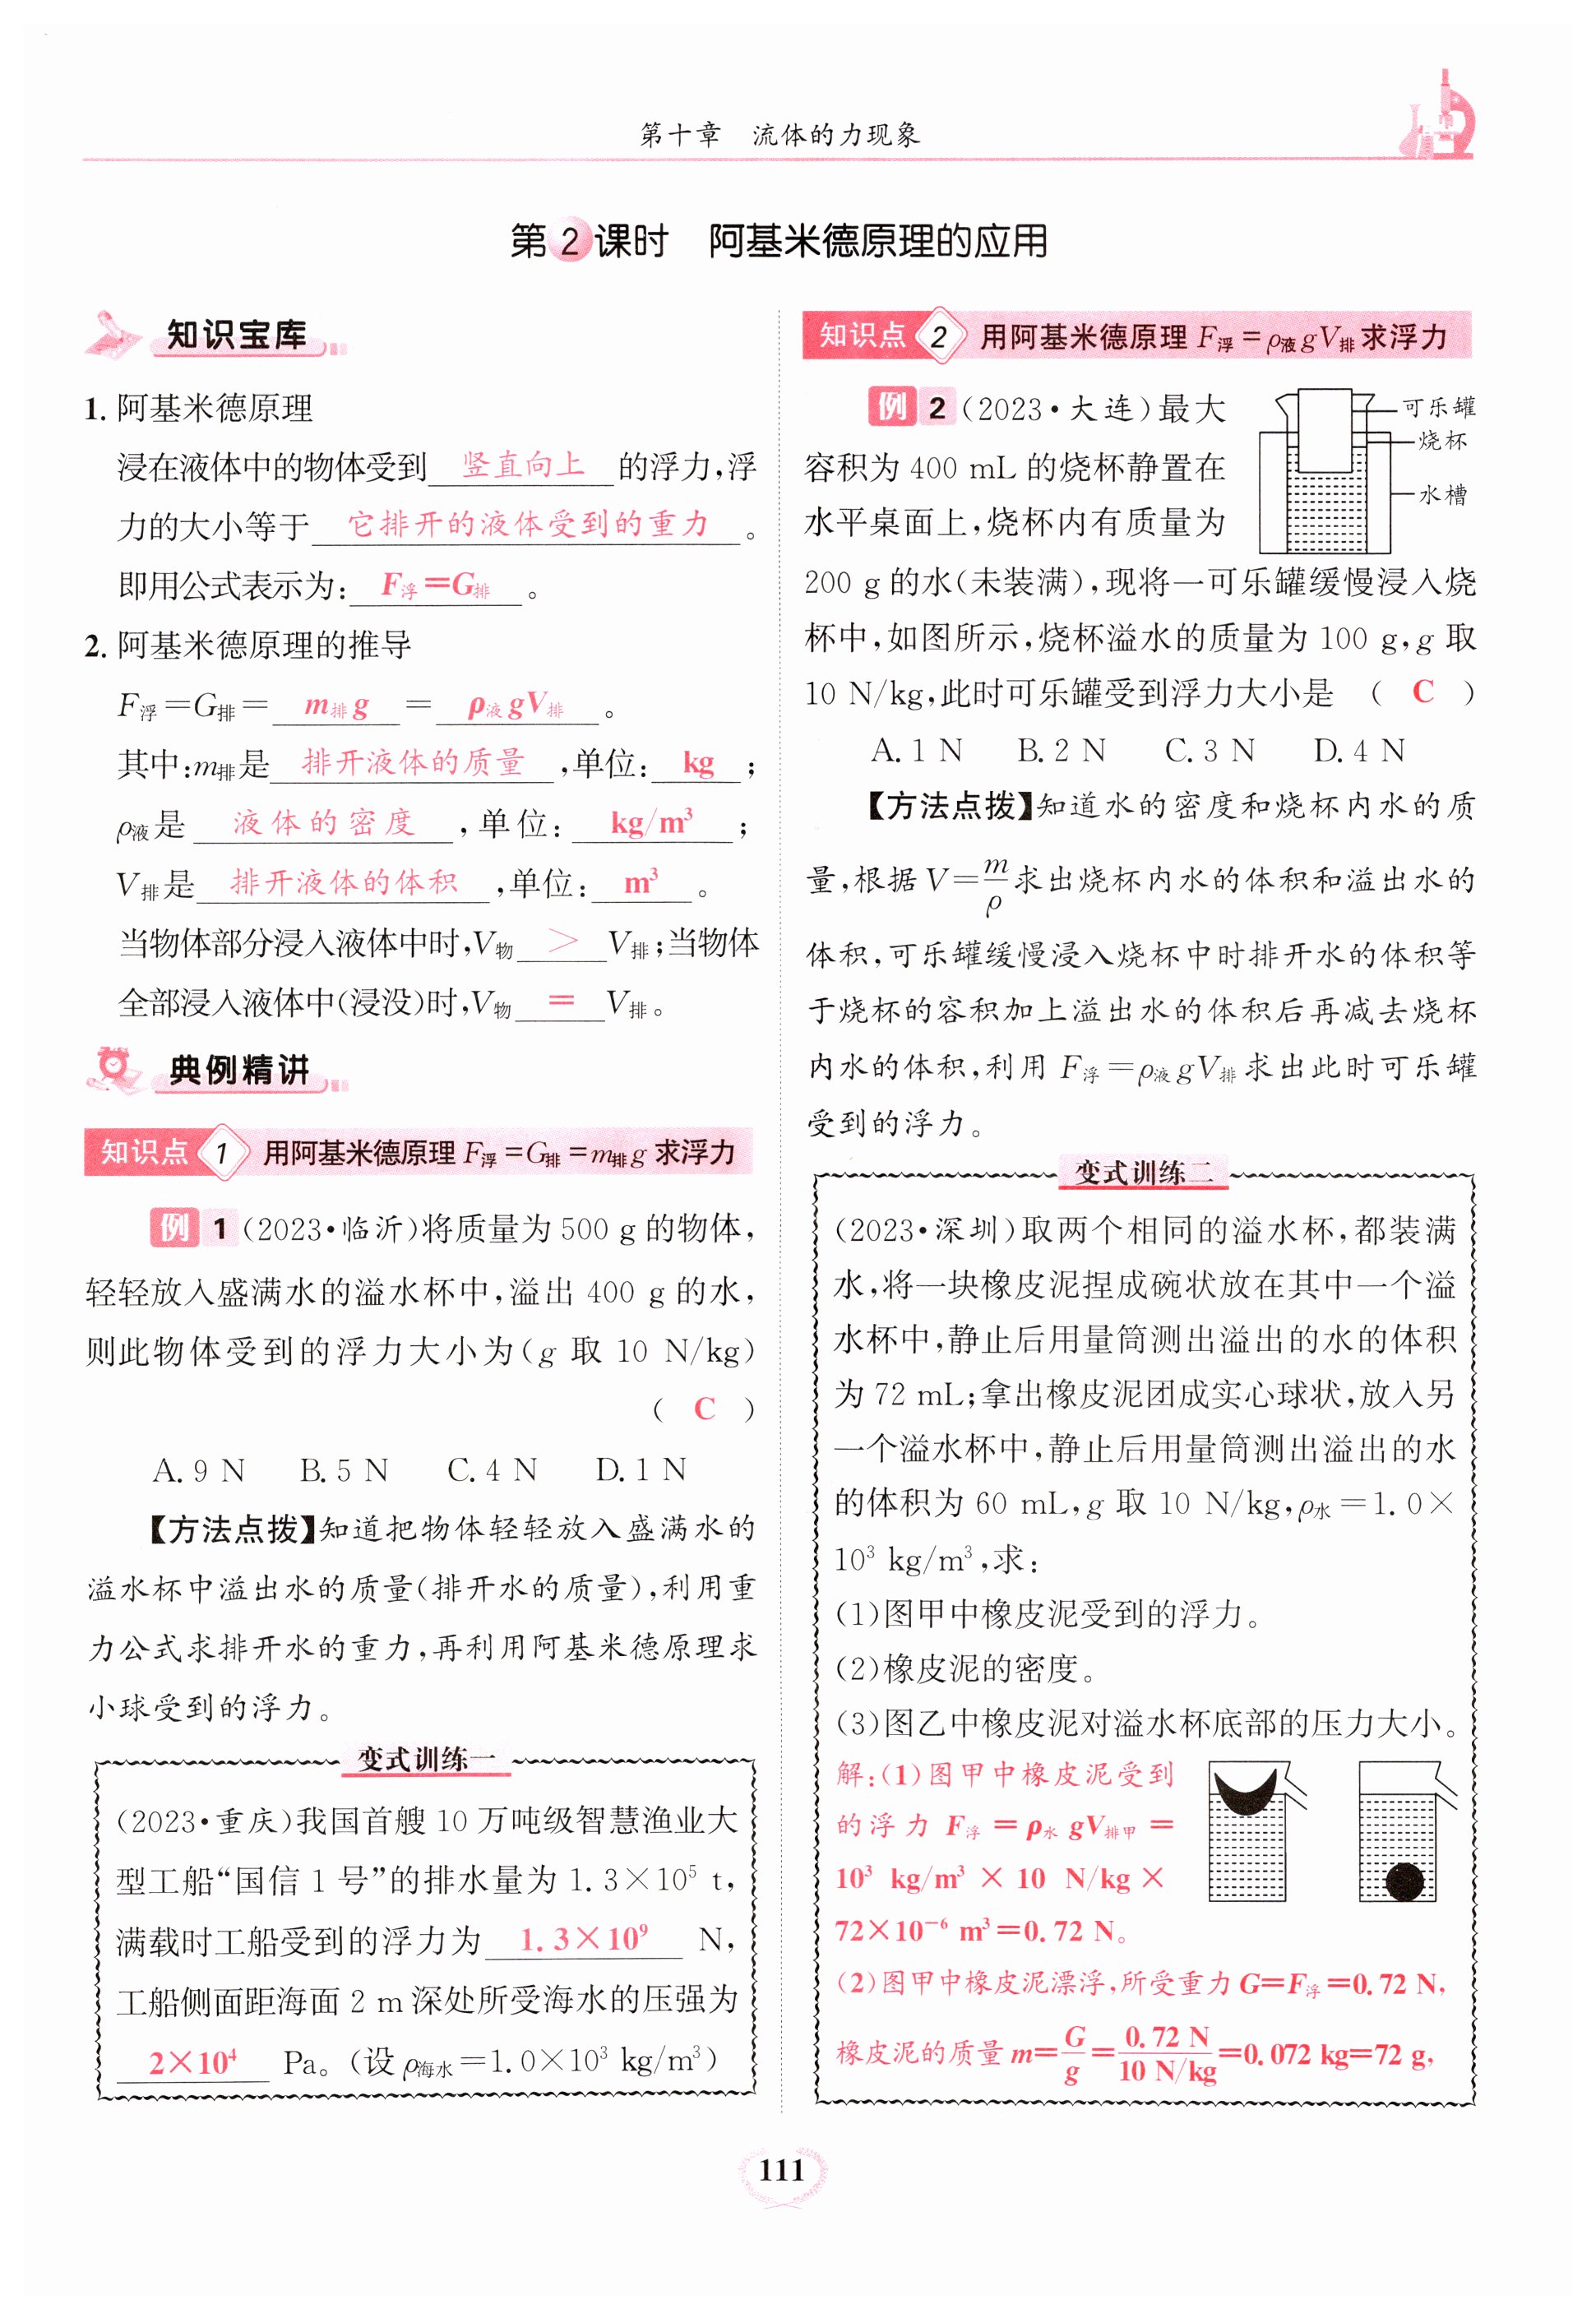 第十章 流体的力现象
第2课时 阿基米德原理的应用
知识宝库
1. 阿基米德原理
浸在液体中的物体受到 竖直向上 的浮力,浮
力的大小等于 它排开的液体受到的重力 。
即用公式表示为: F浮=G排 。
2. 阿基米德原理的推导
F浮=G排= m排g = ρ液gV排 。
其中:m排是 排开液体的质量 ,单位: kg ;
ρ液是 液体的密度 ,单位: kg/m³ ;
V排是 排开液体的体积 ,单位: m³ 。
当物体部分浸入液体中时,V物 > V排;当物体
全部浸入液体中(浸没)时,V物 = V排。
典例精讲
知识点 1 用阿基米德原理 F浮=G排=m排g 求浮力
例1 (2023·临沂)将质量为 500 g 的物体,
轻轻放入盛满水的溢水杯中,溢出 400 g 的水,
则此物体受到的浮力大小为(g 取 10 N/kg)
( C )
A. 9 N B. 5 N C. 4 N D. 1 N
【方法点拨】知道把物体轻轻放入盛满水的
溢水杯中溢出水的质量(排开水的质量),利用重
力公式求排开水的重力,再利用阿基米德原理求
小球受到的浮力。
变式训练一
(2023·重庆)我国首艘 10 万吨级智慧渔业大
型工船“国信 1 号”的排水量为 1.3×10⁵ t,
满载时工船受到的浮力为 1.3×10⁹ N,
工船侧面距海面 2 m 深处所受海水的压强为
2×10⁴ Pa。(设 ρ海水=1.0×10³ kg/m³)
知识点 2 用阿基米德原理 F浮=ρ液gV排求浮力
例2 (2023·大连)最大
容积为 400 mL 的烧杯静置在
水平桌面上,烧杯内有质量为
可乐罐
烧杯
水槽
200 g 的水(未装满),现将一可乐罐缓慢浸入烧
杯中,如图所示,烧杯溢水的质量为 100 g,g 取
10 N/kg,此时可乐罐受到浮力大小是 ( C )
A. 1 N B. 2 N C. 3 N D. 4 N
【方法点拨】知道水的密度和烧杯内水的质
量,根据 V=m/ρ 求出烧杯内水的体积和溢出水的
体积,可乐罐缓慢浸入烧杯中时排开水的体积等
于烧杯的容积加上溢出水的体积后再减去烧杯
内水的体积,利用 F浮=ρ液gV排求出此时可乐罐
受到的浮力。
变式训练二
(2023·深圳)取两个相同的溢水杯,都装满
水,将一块橡皮泥捏成碗状放在其中一个溢
水杯中,静止后用量筒测出溢出的水的体积
为 72 mL;拿出橡皮泥团成实心球状,放入另
一个溢水杯中,静止后用量筒测出溢出的水
的体积为 60 mL,g 取 10 N/kg,ρ水=1.0×
10³ kg/m³,求:
(1)图甲中橡皮泥受到的浮力。
(2)橡皮泥的密度。
(3)图乙中橡皮泥对溢水杯底部的压力大小。
解:(1)图甲中橡皮泥受到
的浮力 F浮=ρ水gV排甲=
10³ kg/m³×10 N/kg×
72×10⁻⁶ m³=0.72 N。
(2)图甲中橡皮泥漂浮,所受重力 G=F浮=0.72 N,
橡皮泥的质量 m=G/g=0.72 N/10 N/kg=0.072 kg=72 g,
111